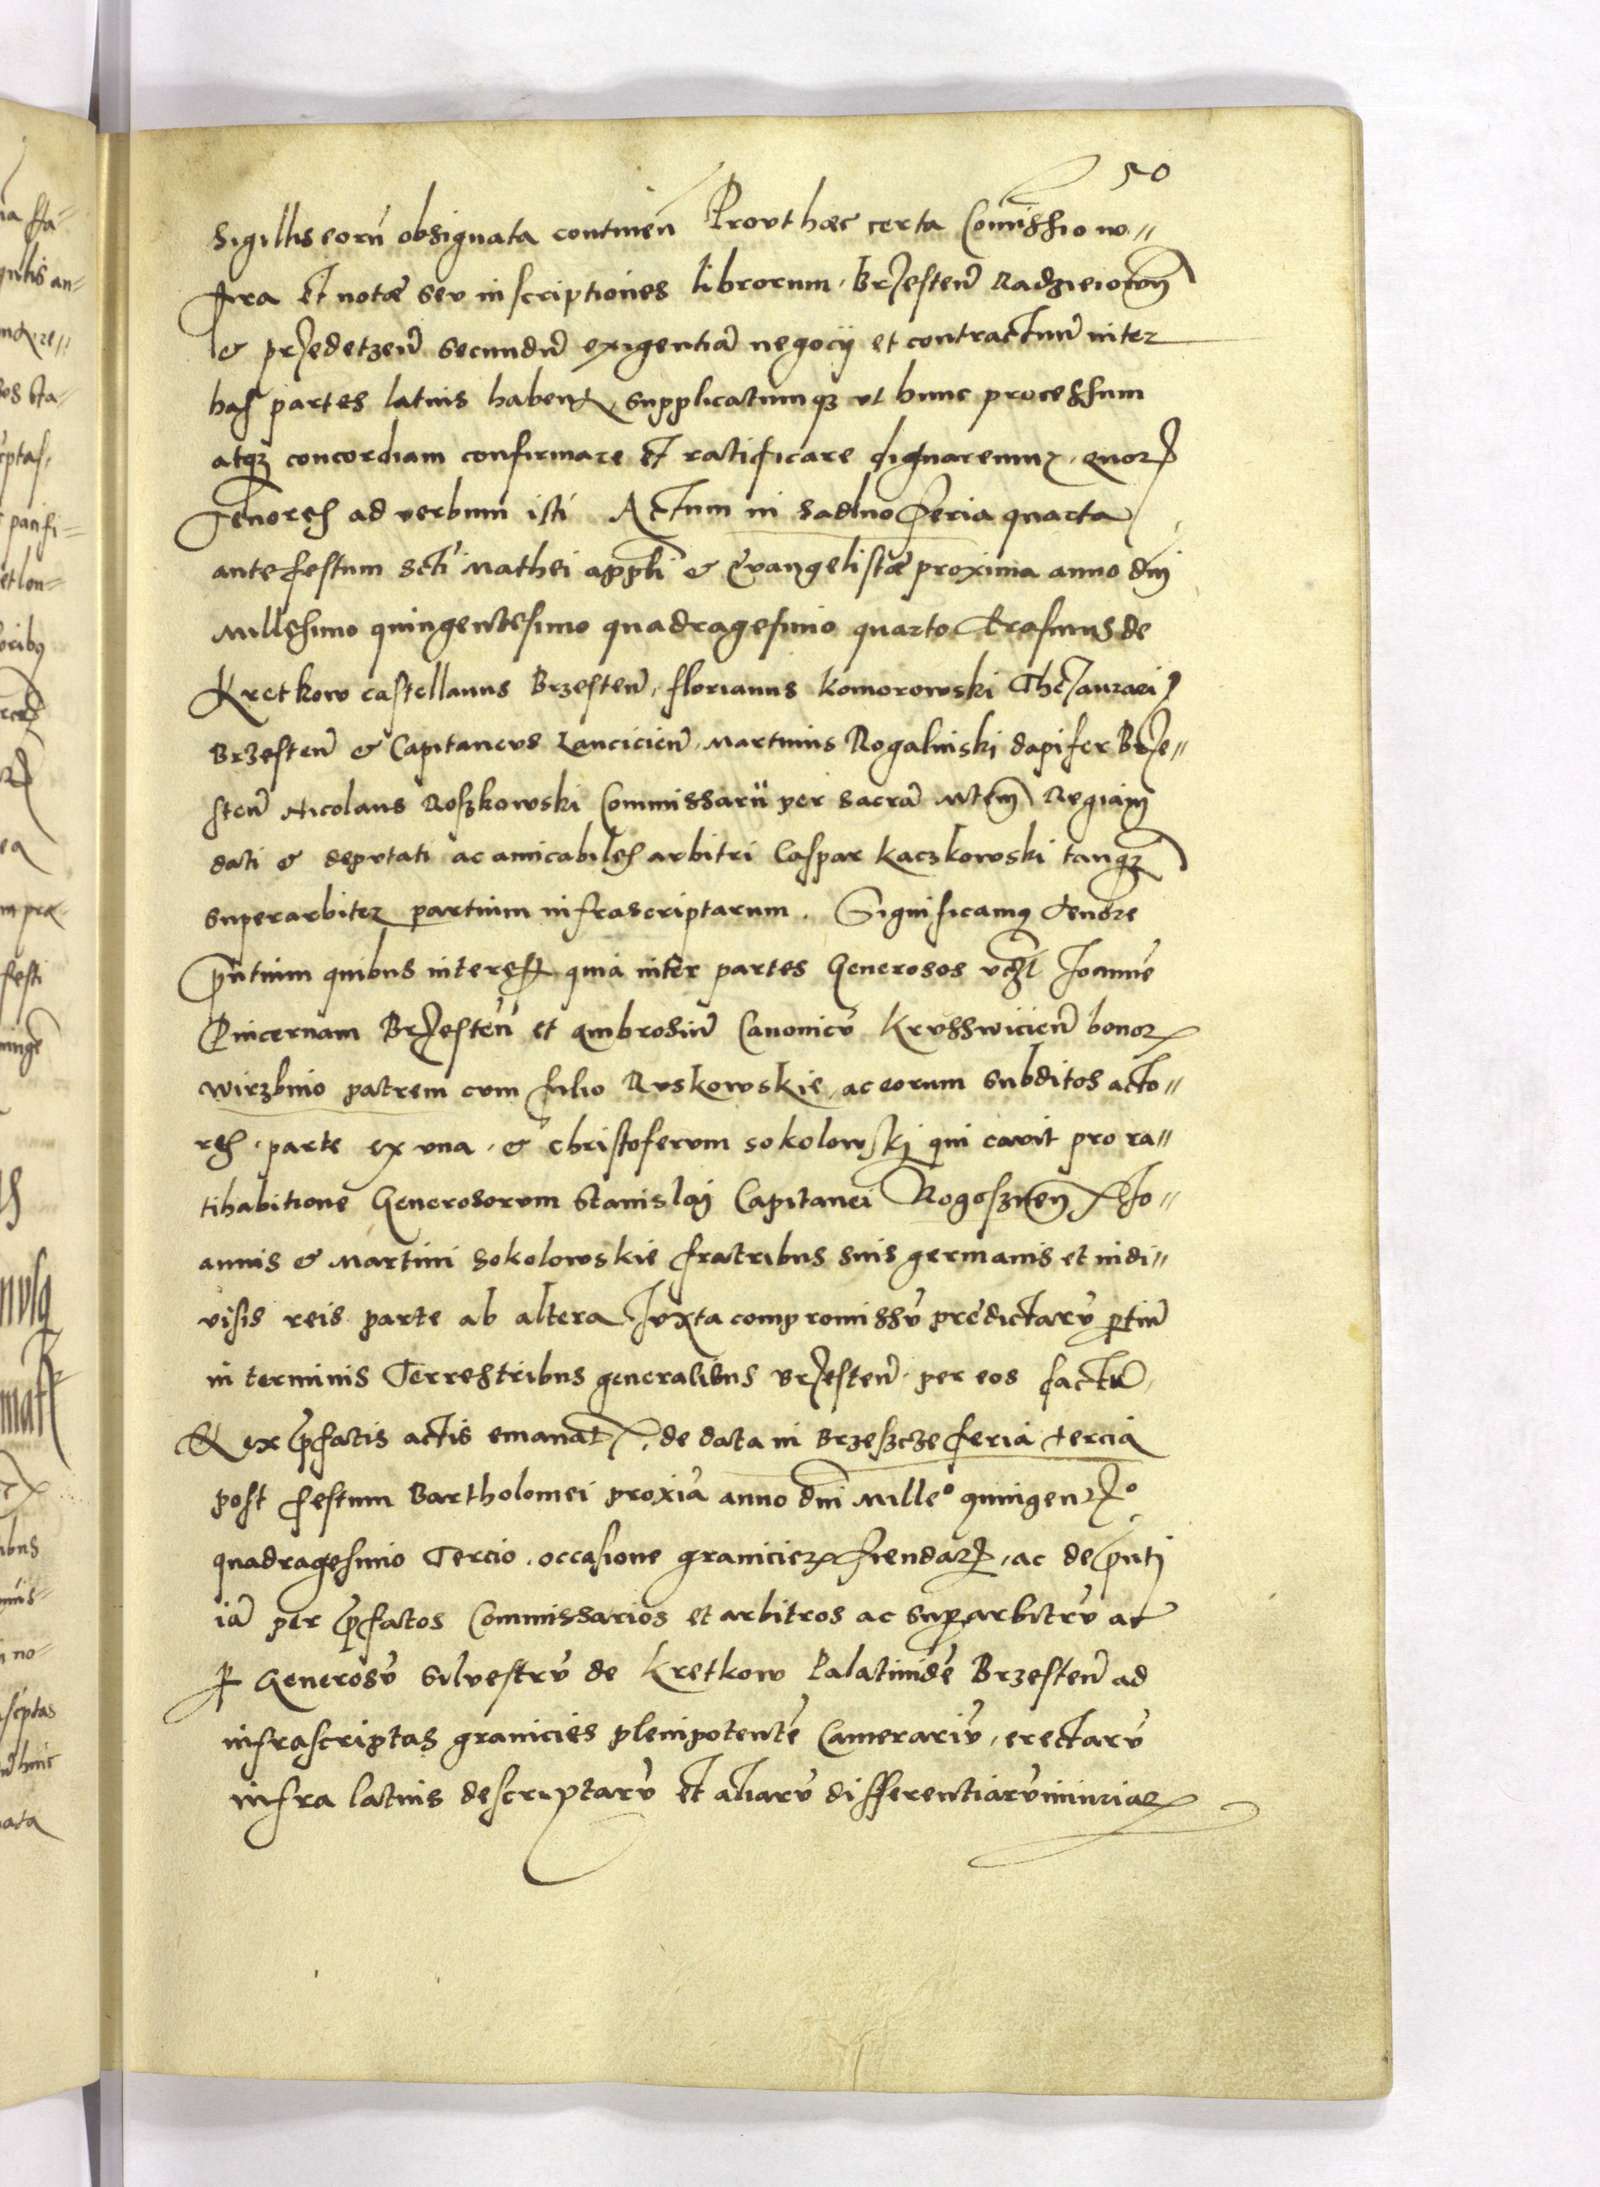 50
Sigillis eorū obsignata continen̄ Provt hæc certa Comissio no=
stra et notæ seu inscriptiones librorum Brzesten̄ Radzieiowien̄
& przedetzen̄ secundū exigentiā negocij et contractuū inter
has partes latius habent, supplicatumqȝ ut hunc processum
atqȝ concordiam confirmare et ratificare dignaremur, quorꝝ
Tenores ad verbum isti Actum in Sadlno Feria quarta
ante festum Scti Mathei appli & Evangelistæ proxima anno dni
Millesimo quingentesimo quadragesimo quarto Erasmus de
Kretkow castellanus Brzesten̄, florianus Komorowski Thesaurari⁹
Brzesten̄ & Capitaneus Lancicien̄, Martinus Rogalinski dapifer Brze=
sten̄ Nicolaus Roszkowski Commissarii per sacrā Mtem Regiam
dati & deputati ac amicabiles arbitri Caspar Kaczkowski tanqȝ
superarbiter partium infrascriptarum. Significamus tenore
pn̄tium quibus interest quia inter partes Generosos Joannē
Pincernam Brzesten̄ et Ambrosiū Canonicū Krusswicien̄ bonoꝝ
Wirzbino patrem cum filio Ruskowskie, ac eorum subditos acto=
res parte ex una & Christoferum Sokolowski qui cavit pro ra=
tihabitione Generosorum Stanislai Capitanei Rogoznen̄ Jo=
annis & Martini Sokolowskie fratribus suis germanis et indi=
visis reis parte ab altera Juxta compromissū predictarū ptiū
in terminis Terrestribus generalibus Brzesten̄ per eos factū
& ex pfatis actis emanat, de data in Brzescze feria tercia
post festum Bartholomei proxīa anno dni Mille⁰ quingen⁰
quadragesimo Tercio, occasione granicieꝝ fiendaꝝ, ac de pnti
iā per pfatos Commissarios et arbitros ac suparbitrū ac
ꝑ Generosū Silvestrū de Kretkow Palatinidē Brzesten̄ ad
infrascriptas granicies plenipotentē Camerariū, erectarū
infra latius descriptarū et aliarū differentiarū iniuriaꝝ